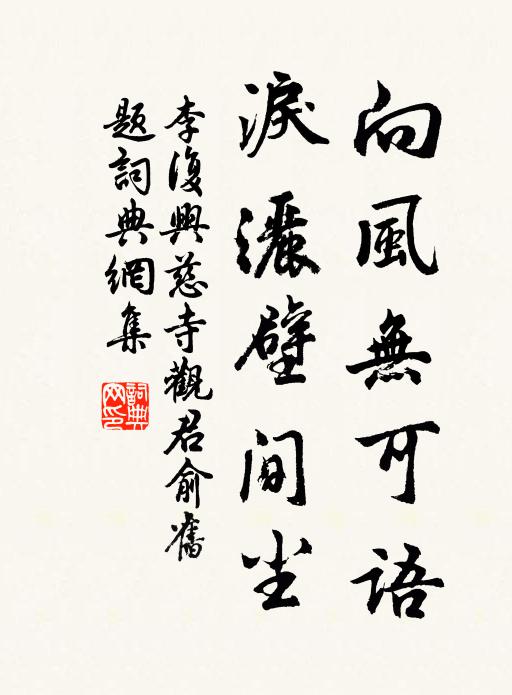 向風無可語
淚灑壁间尘
李復興慈寺觀君俞舊
題詞典網集
詞典
网印